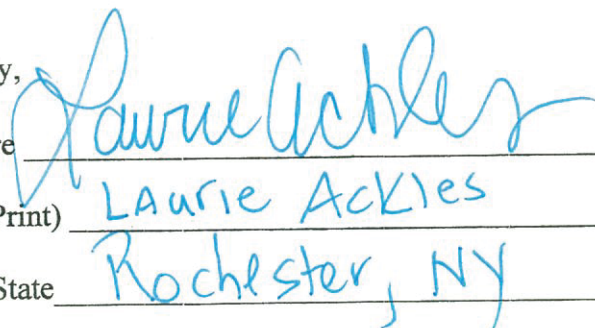 y,
re Laurie Ackles
Print) LAurie Ackles
State Rochester, NY